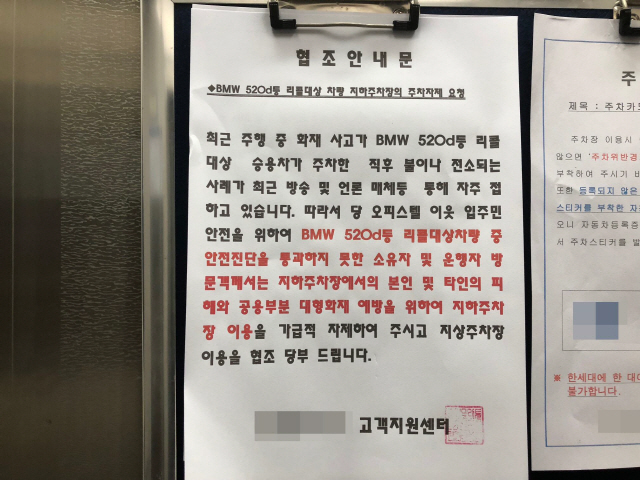 협조안내문
◆BMW 520d등 리콜대상 차량 지하주차장의 주차자제 요청
최근 주행 중 화재 사고가 BMW 520d등 리콜
대상 승용차가 주차한 직후 불이나 전소되는
사례가 최근 방송 및 언론 매체등 통해 자주 접
하고 있습니다. 따라서 당 오피스텔 이웃 입주민
안전을 위하여 BMW 520d등 리콜대상차량 중
안전진단을 통과하지 못한 소유자 및 운행자 방
문객께서는 지하주차장에서의 본인 및 타인의 피
해와 공용부분 대형화재 예방을 위하여 지하주차
장 이용을 가급적 자제하여 주시고 지상주차장
이용을 협조 당부 드립니다.
고객지원센터
주
제목 : 주차카
주차장 이용시
않으면 '주차위반경
부착하여 주시기 바
또한 등록되지 않은
스티커를 부착한 자
오니 자동차등록증
서 주차스티커를 발
※ 한세대에 한 대
불가합니다.